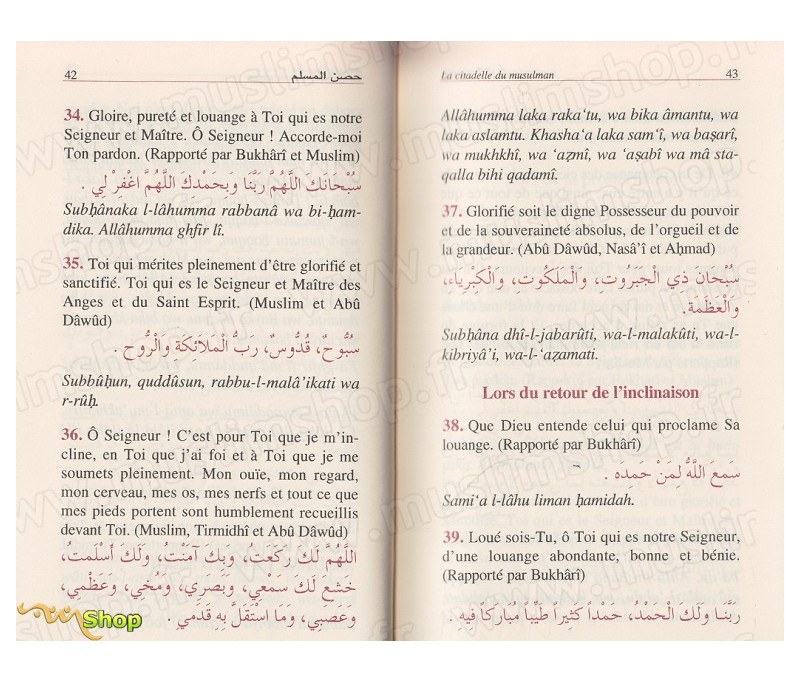 42 حصن المسلم
34. Gloire, pureté et louange à Toi qui es notre
Seigneur et Maître. Ô Seigneur ! Accorde-moi
Ton pardon. (Rapporté par Bukhârî et Muslim)
سُبْحَانَكَ اللَّهُمَّ رَبَّنَا وَبِحَمْدِكَ اللَّهُمَّ اغْفِرْ لِي .
Subḥânaka l-lâhumma rabbanâ wa bi-ḥam-
dika. Allâhumma ghfir lî.
35. Toi qui mérites pleinement d'être glorifié et
sanctifié. Toi qui es le Seigneur et Maître des
Anges et du Saint Esprit. (Muslim et Abû
Dâwûd)
سُبُّوحٌ، قُدُّوسٌ، رَبُّ الْمَلَائِكَةِ وَالرُّوحِ .
Subbûḥun, quddûsun, rabbu-l-malâ'ikati wa
r-rûḥ.
36. Ô Seigneur ! C'est pour Toi que je m'in-
cline, en Toi que j'ai foi et à Toi que je me
soumets pleinement. Mon ouïe, mon regard,
mon cerveau, mes os, mes nerfs et tout ce que
mes pieds portent sont humblement recueillis
devant Toi. (Muslim, Tirmidhî et Abû Dâwûd)
اللَّهُمَّ لَكَ رَكَعْتُ، وَبِكَ آمَنْتُ، وَلَكَ أَسْلَمتُ،
خَشَعَ لَكَ سَمْعِي، وَبَصَرِي، وَمُخِّي، وَعَظْمِي،
وَعَصَبِي، وَمَا اسْتَقَلَّ بِهِ قَدَمَيَ .
La citadelle du musulman 43
Allâhumma laka raka'tu, wa bika âmantu, wa
laka aslamtu. Khasha'a laka sam'î, wa baṣarî,
wa mukhkhî, wa 'aẓmî, wa 'aṣabî wa mâ sta-
qalla bihi qadamî.
37. Glorifié soit le digne Possesseur du pouvoir
et de la souveraineté absolus, de l'orgueil et de
la grandeur. (Abû Dâwûd, Nasâ'î et Aḥmad)
سُبْحَانَ ذِي الْجَبَرُوتِ، وَالْمَلَكُوتِ، وَالْكِبْرِيَاءِ،
وَالْعَظَمَةِ.
Subḥâna dhî-l-jabarûti, wa-l-malakûti, wa-l-
kibriyâ'i, wa-l-'aẓamati.
Lors du retour de l'inclinaison
38. Que Dieu entende celui qui proclame Sa
louange. (Rapporté par Bukhârî)
سَمَعَ اللَّهُ لِمَنْ حَمَدِه .
Sami'a l-lâhu liman ḥamidah.
39. Loué sois-Tu, ô Toi qui es notre Seigneur,
d'une louange abondante, bonne et bénie.
(Rapporté par Bukhârî)
رَبَّنَا وَلَكَ الْحَمْدُ، حَمْداً كَثِيراً طَيِّباً مُبَارَكاً فِيهِ .
Shop
www.muslimshop.fr